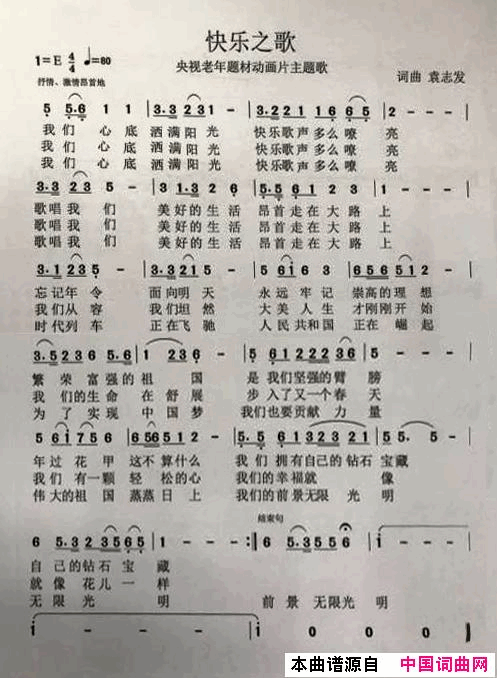 快乐之歌
1=E 4/4 ♩=80
央视老年题材动画片主题歌
抒情、激情昂首地
词曲 袁志发
我们 心底 洒满阳光 快乐歌声多么嘹亮
我们 心底 洒满阳光 快乐歌声多么嘹亮
我们 心底 洒满阳光 快乐歌声多么嘹亮
歌唱我们 美好的生活 昂首走在大路上
歌唱我们 美好的生活 昂首走在大路上
歌唱我们 美好的生活 昂首走在大路上
忘记年令 面向明天 永远牢记 崇高的理想
我们从容 我们坦然 大美人生 才刚刚开始
时代列车 正在飞驰 人民共和国 正在崛起
繁荣富强的祖国 是我们坚强的臂膀
我们的生命在舒展 步入了又一个春天
为了实现中国梦 我们也要贡献力量
年过花甲 这不算什么 我们拥有自己的钻石宝藏
我们有一颗轻松的心 我们的幸福就像
伟大的祖国蒸蒸日上 我们的前景无限光明
结束句
自己的钻石宝藏
就像花儿一样
无限光明 前景无限光明
本曲谱源自 中国词曲网